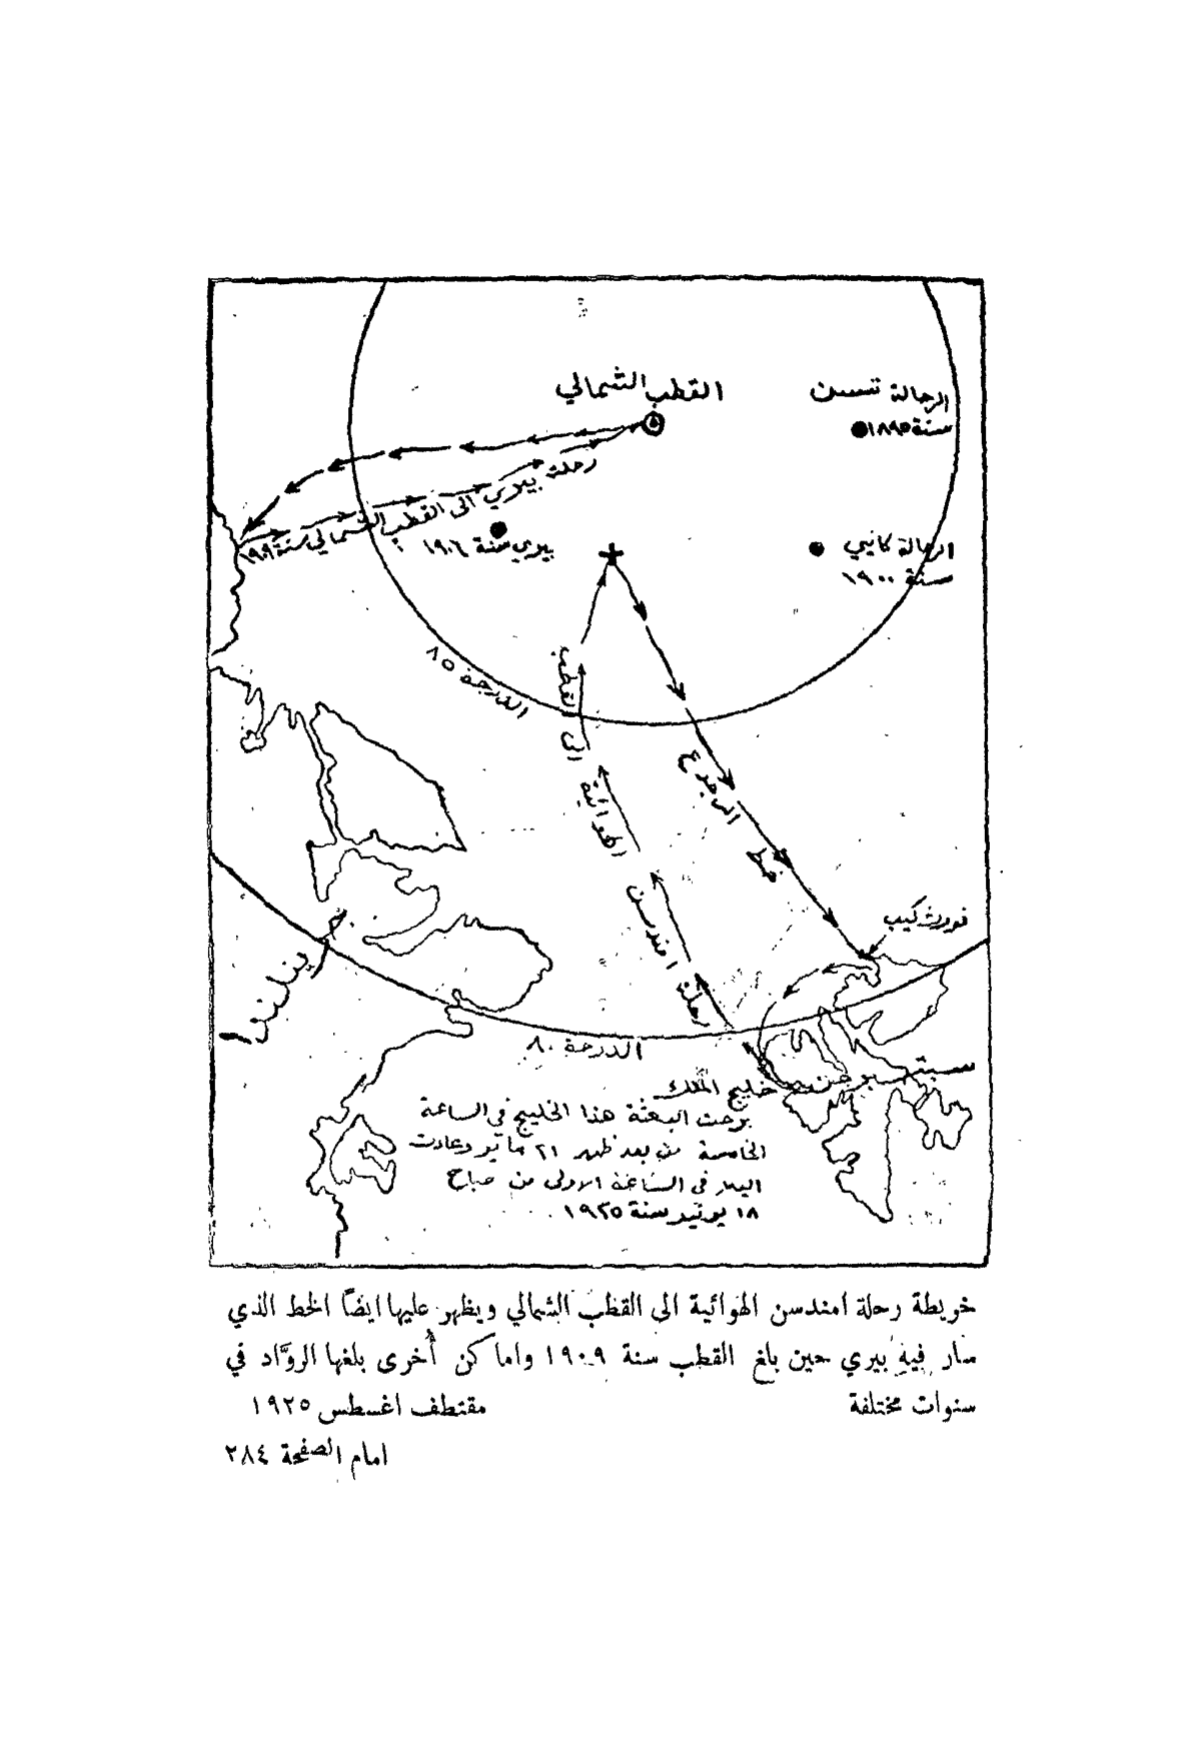 القطب الشمالي
الرحالة ننسن
سنة ١٨٩٥
رحلة بيري الى القطب الشمالي سنة ١٩٠٩
بيري سنة ١٩٠٦
الرحالة كانيي
سنة ١٩٠٠
الدرجة ٨٥
رحلة امندسن الهوائية الى القطب
خط الرجوع
نورث كيب
جرينلندا
الدرجة ٨٠
سبتسبرجن
خليج الملك
برحت البعثة هذا الخليج في الساعة
الخامسة من بعد ظهر ٢١ مايو وعادت
اليه في الساعة الاولى من صباح
١٨ يونيه سنة ١٩٢٥
خريطة رحلة امندسن الهوائية الى القطب الشمالي ويظهر عليها ايضاً الخط الذي
سار فيه بيري حين بلغ القطب سنة ١٩٠٩ واماكن أخرى بلغها الروَّاد في
سنوات مختلفة
مقتطف اغسطس ١٩٢٥
امام الصفحة ٢٨٤